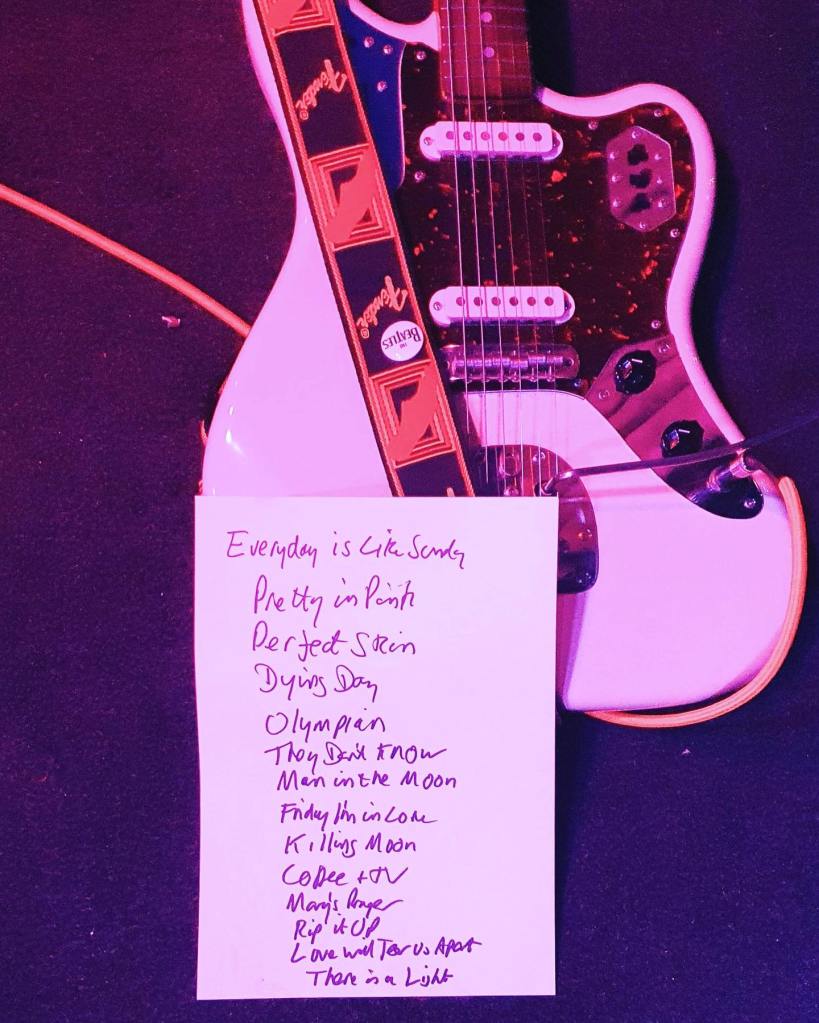 Fender
Fender
THE
BEATLES
Everyday is Like Sunday
Pretty in Pink
Perfect Skin
Dying Day
Olympian
They Don't Know
Man in the Moon
Friday I'm in Love
Killing Moon
Coffee + TV
Mary's Prayer
Rip it Up
Love will Tear Us Apart
There is a Light